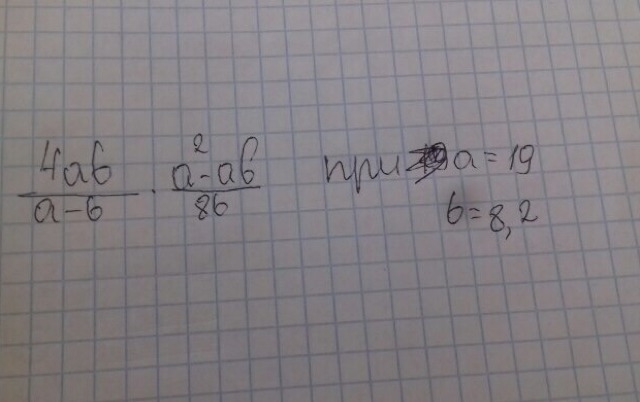 4ab/a-b · a²-ab/8b при a=19
b=8,2